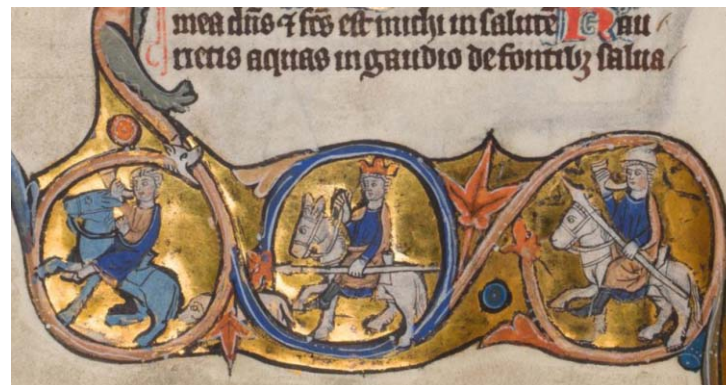 mea dñs ⁊ fcs est michi in salutē Rau
rietis aquas in gaudio de fontibꝫ salua